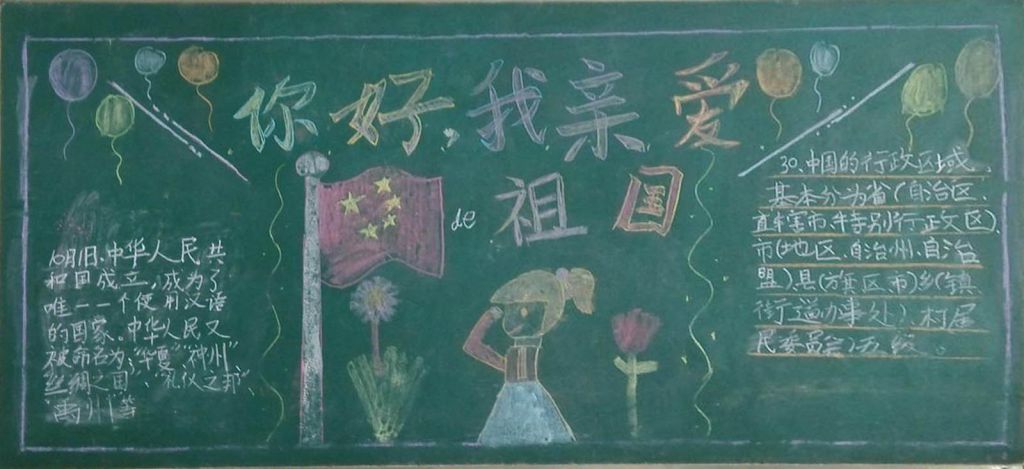 你好,我亲爱
de 祖国
10月1日.中华人民共
和国成立,成为了
唯一一个使用汉语
的国家.中华人民又
被命名为:"华夏""神州"
丝绸之国"、"礼仪之邦"
禹州等
30、中国的行政区域、
基本分为省(自治区、
直辖市、特别行政区)、
市(地区、自治州、自治
盟)、县(旗区市)乡(镇
街道办事处)、村居
民委员会)五级。